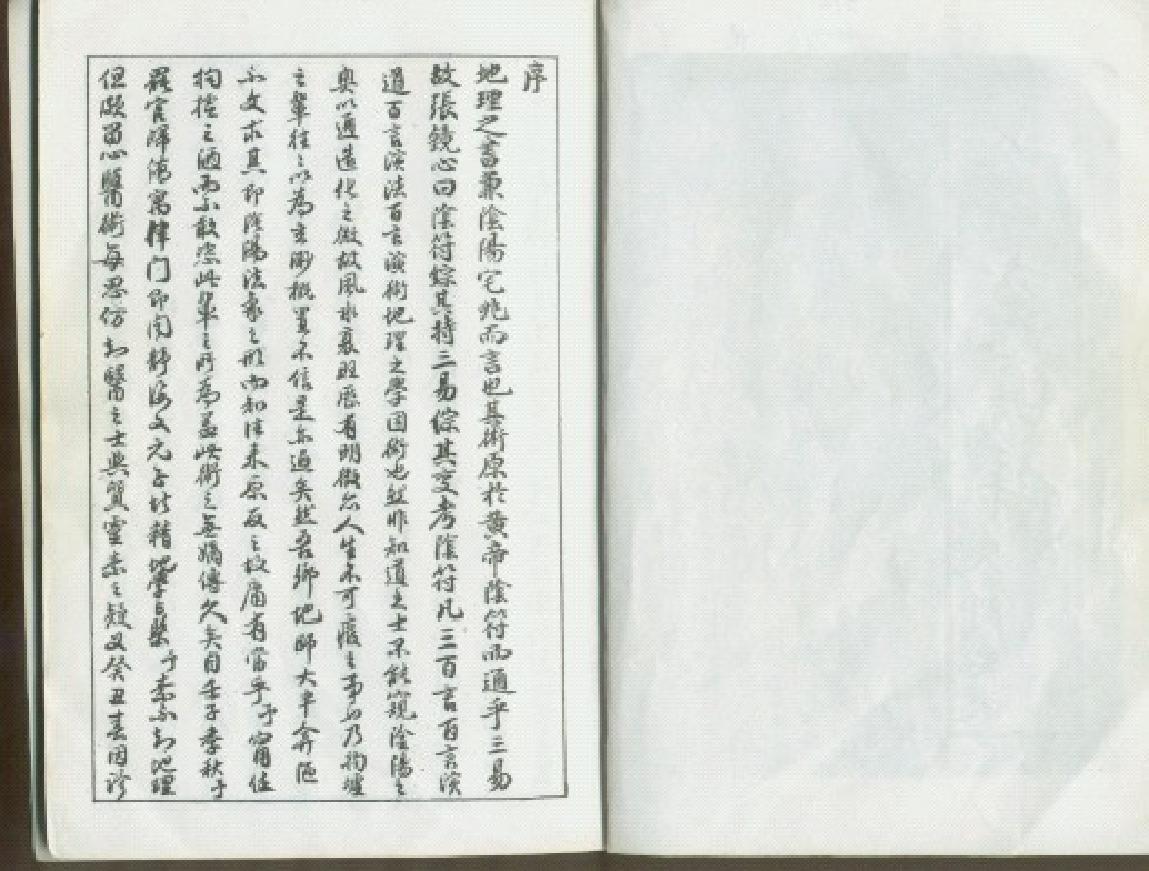 序
地理之書兼陰陽宅兆而言也其術原於黃帝陰符而通乎三易
故張鏡心曰陰符綜其持三易綜其變考陰符凡三百言百言演
道百言演法百言演術地理之學固術也然非知道之士不能窺陰陽之
奧以通造化之微故風水衰旺應有明徵為人生不可廢之事為乃拘墟
之輩往之以為玄渺概置不信是亦過矣然吾鄉地師大半弇陋
不文求其即陰陽法象之形而知往來原反之故庸有當乎予甯住
拘墟之而不敢恣此輩之所為蓋此術之無嫡傳久矣自壬子季秋予
罷官歸僑寓津门即聞靜海文元子精地學
予素不知地理
但頗留心醫術每思仿知醫之士與質靈素之疑又癸丑春因診